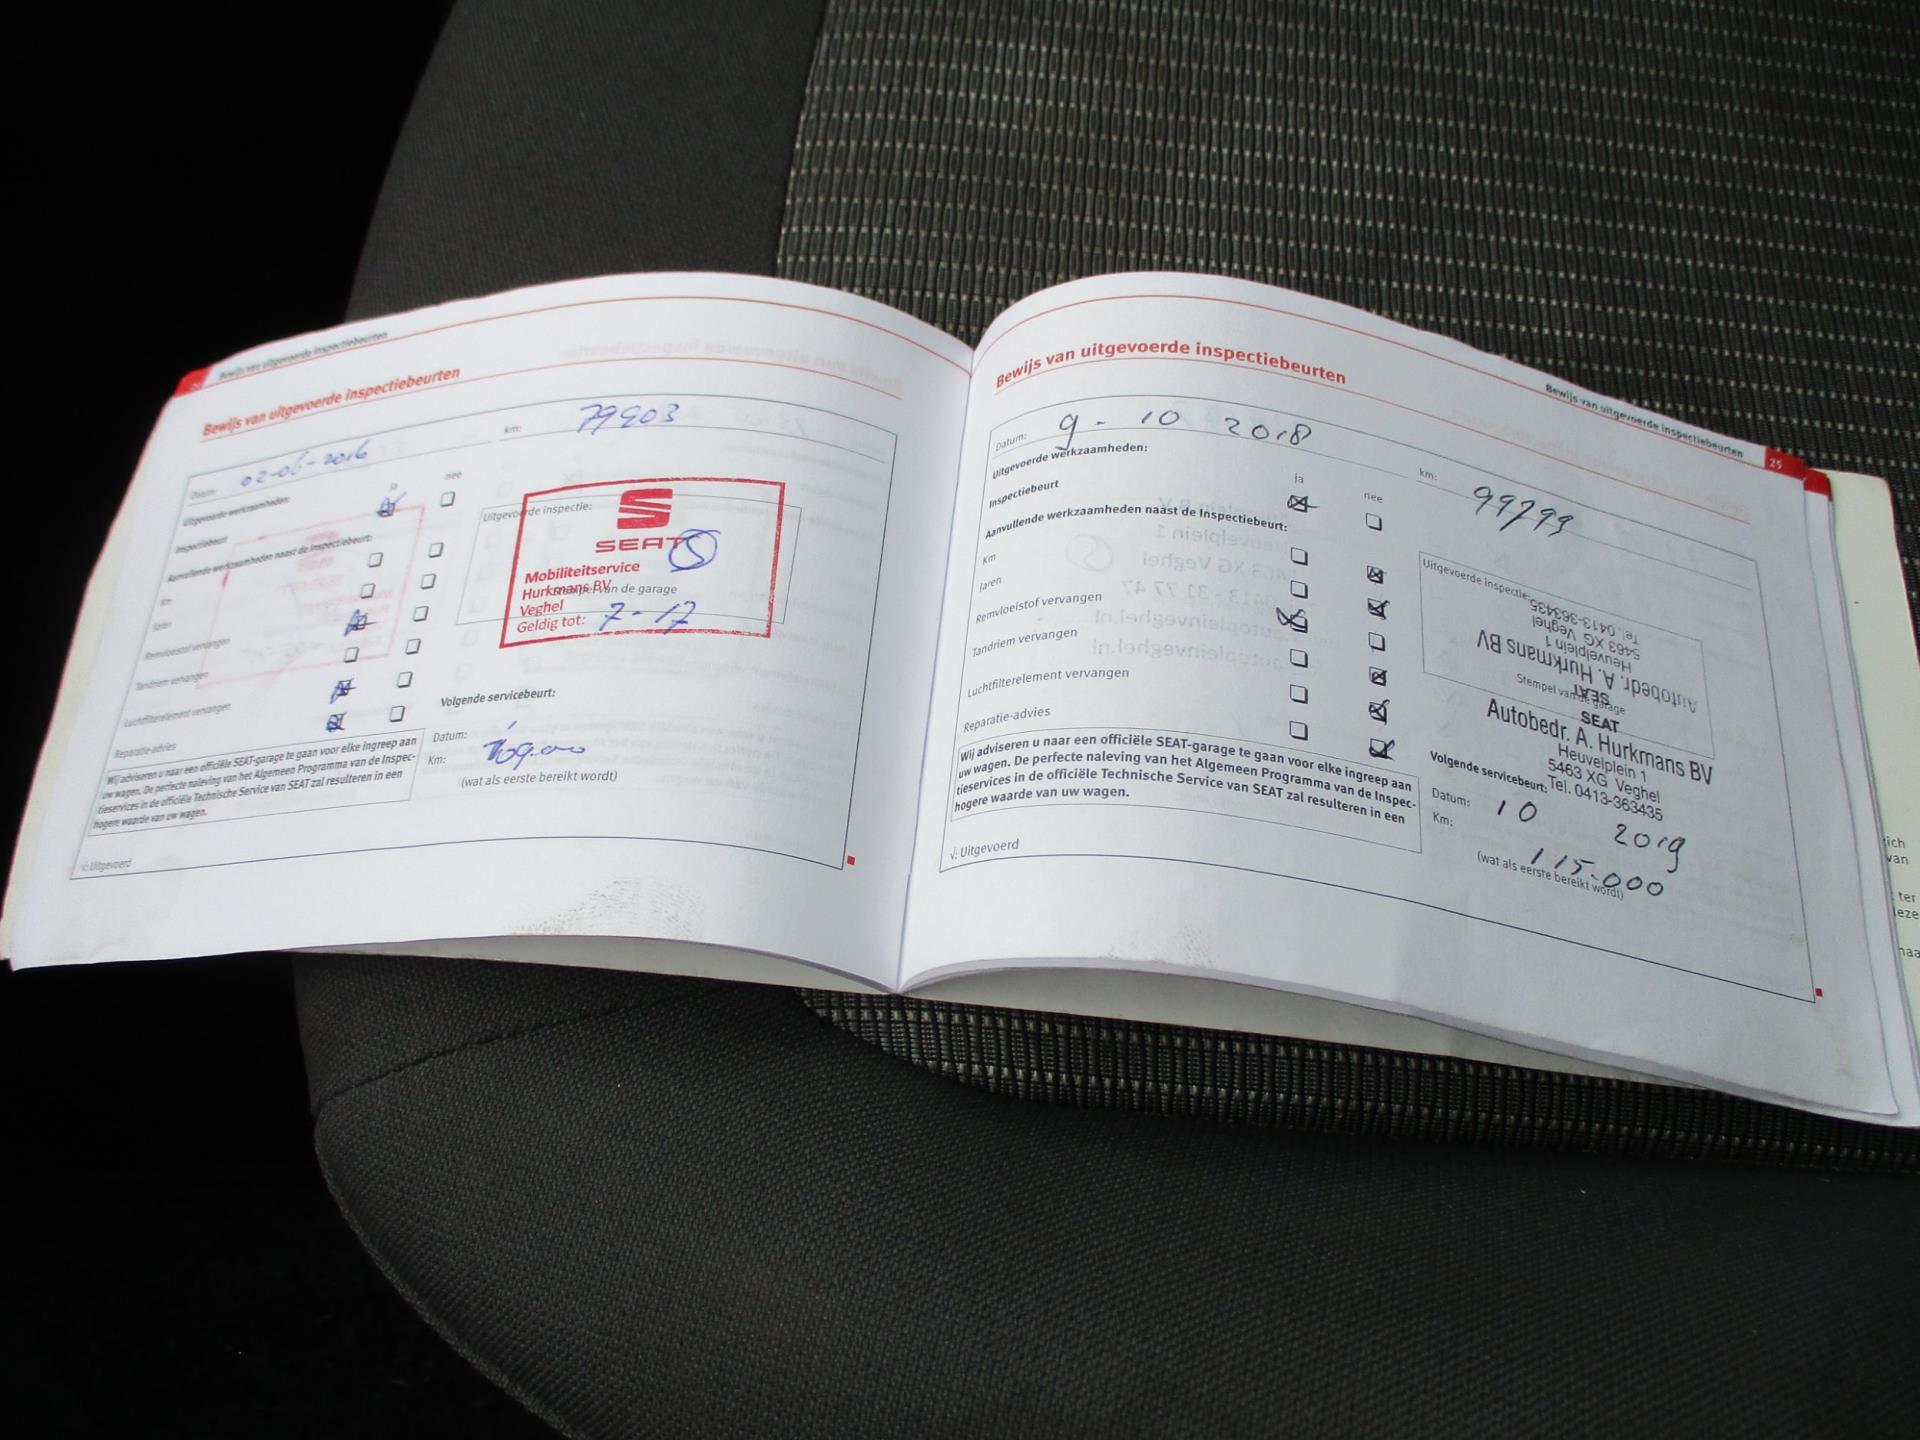 24 Bewijs van uitgevoerde inspectiebeurten
Bewijs van uitgevoerde inspectiebeurten
Datum: 02-06-2016 km: 79903
Uitgevoerde werkzaamheden: ja nee
Inspectiebeurt
Aanvullende werkzaamheden naast de Inspectiebeurt:
Km
Jaren
Remvloeistof vervangen
Tandriem vervangen
Luchtfilterelement vervangen
Reparatie-advies
Wij adviseren u naar een officiële SEAT-garage te gaan voor elke ingreep aan
uw wagen. De perfecte naleving van het Algemeen Programma van de Inspec-
tieservices in de officiële Technische Service van SEAT zal resulteren in een
hogere waarde van uw wagen.
√: Uitgevoerd
Uitgevoerde inspectie:
SEAT
Mobiliteitservice
Hurkmans BV
Stempel van de garage
Veghel
Geldig tot: 7-17
Volgende servicebeurt:
Datum:
Km: 109.000
(wat als eerste bereikt wordt)
Bewijs van uitgevoerde inspectiebeurten 25
Bewijs van uitgevoerde inspectiebeurten
Datum: 9 - 10 2018 km: 99799
Uitgevoerde werkzaamheden: ja nee
Inspectiebeurt
Aanvullende werkzaamheden naast de Inspectiebeurt:
Km
Jaren
Remvloeistof vervangen
Tandriem vervangen
Luchtfilterelement vervangen
Reparatie-advies
Wij adviseren u naar een officiële SEAT-garage te gaan voor elke ingreep aan
uw wagen. De perfecte naleving van het Algemeen Programma van de Inspec-
tieservices in de officiële Technische Service van SEAT zal resulteren in een
hogere waarde van uw wagen.
√: Uitgevoerd
Uitgevoerde inspectie:
Tel. 0413-363435
5463 XG Veghel
Heuvelplein 1
Autobedr. A. Hurkmans BV
SEAT
Stempel van de garage
SEAT
Autobedr. A. Hurkmans BV
Heuvelplein 1
5463 XG Veghel
Tel. 0413-363435
Volgende servicebeurt:
Datum: 10 2019
Km: 115.000
(wat als eerste bereikt wordt)